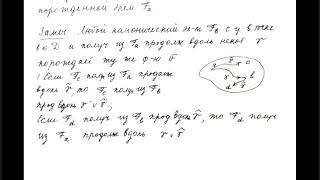 порожденной элем F₂
Замеч Любой канонический эл-т F_b с ц в точке
b ∈ D и получ из F₂ продолж вдоль некот γ
порождает ту же ф-ю F
| Если F_c получ из F₂ продолж
вдоль γ̃, то F_c получ из F_b
прод вдоль γ ∪ γ̃
Если F_d получ из F_b прод вдоль γ̃, то F_d получ
из F₂ продолж вдоль γ ∪ γ̃